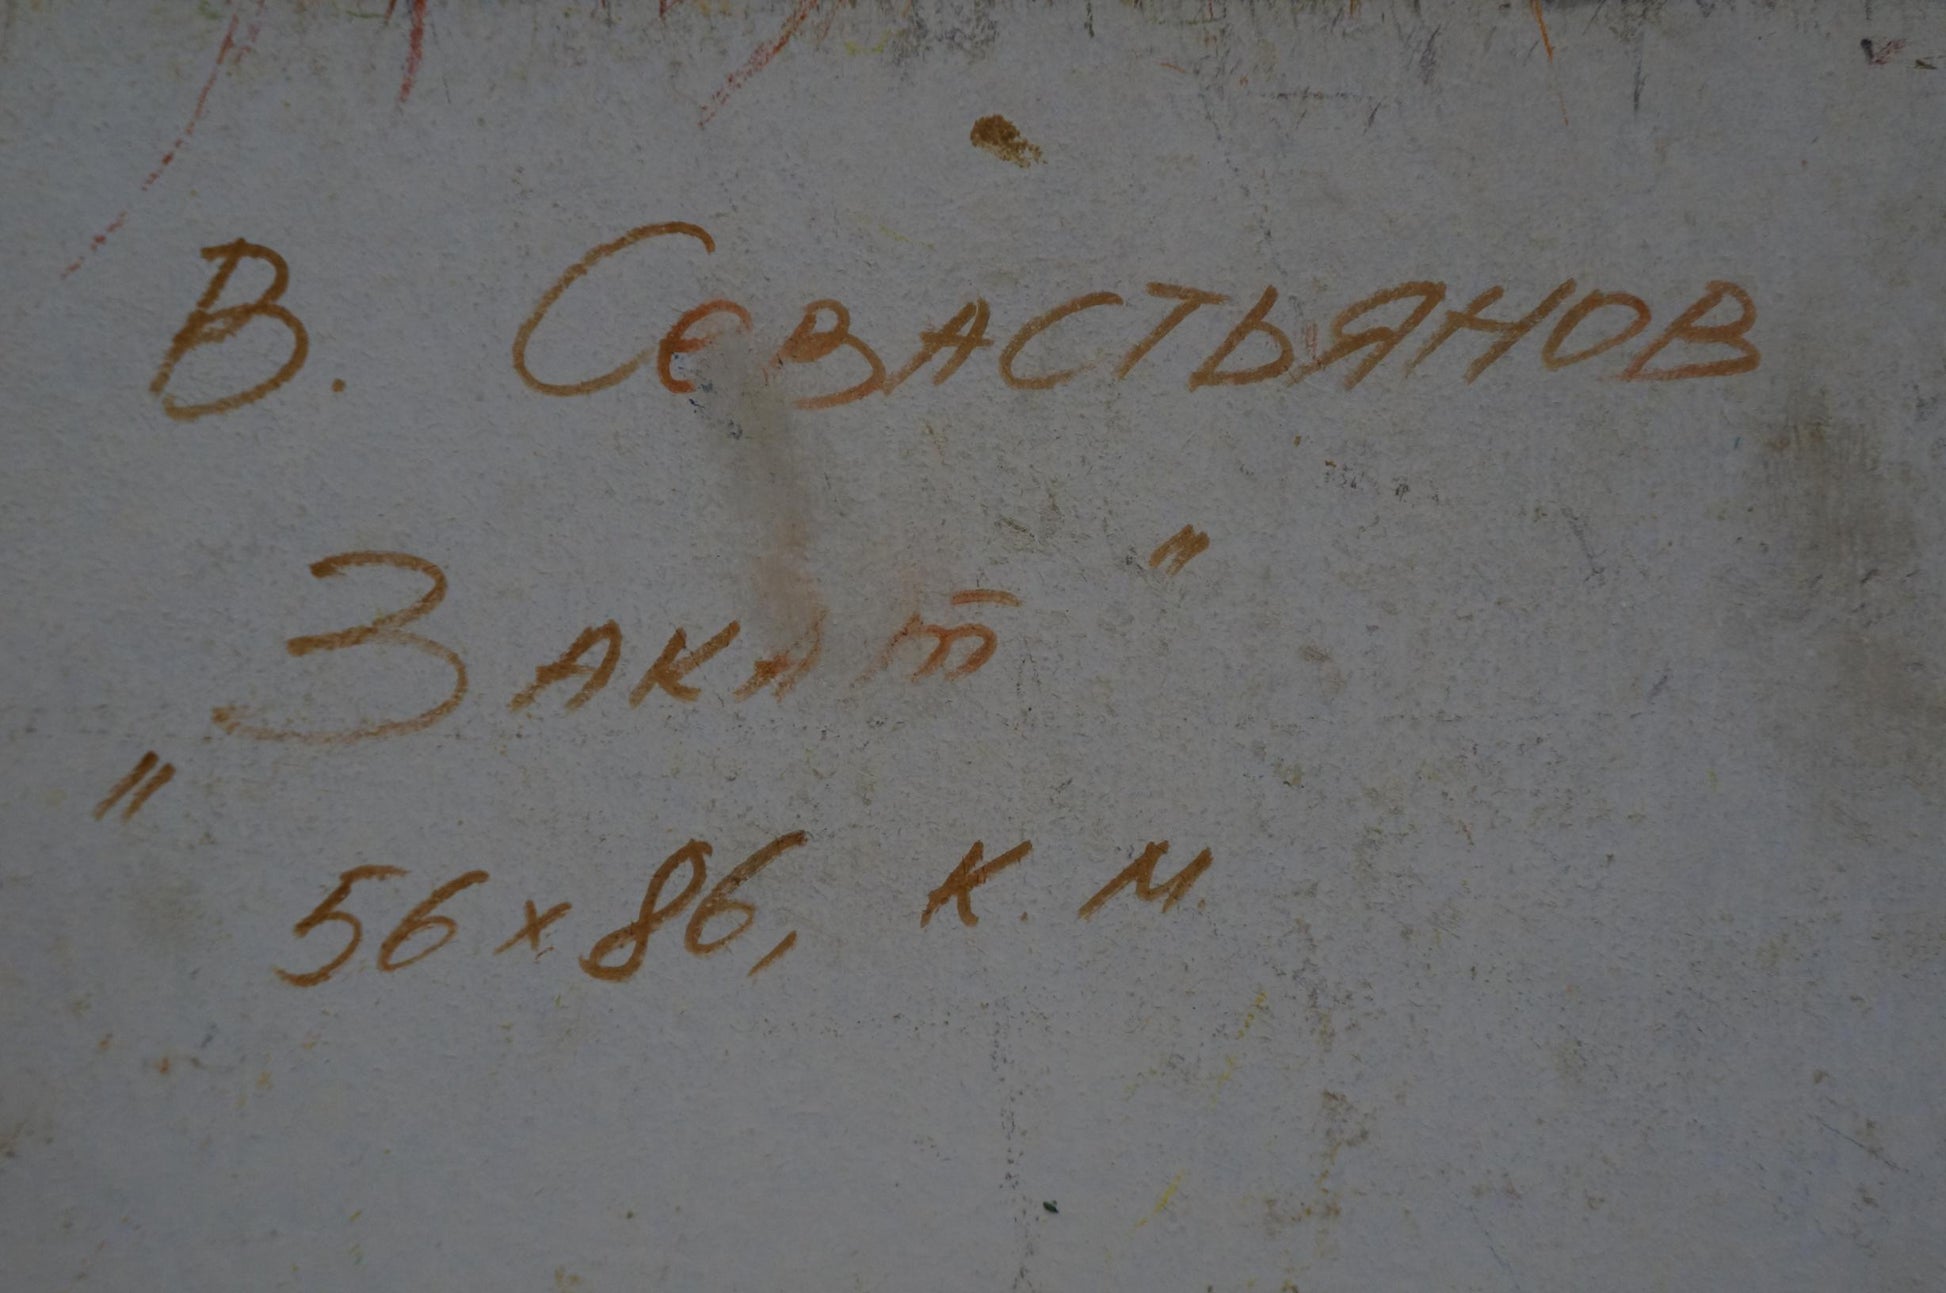 В. Севастьянов
„Закат"
56 x 86, к. м.